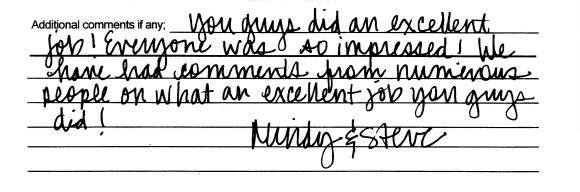 Additional comments if any: You guys did an excellent
job! Everyone was so impressed! We
have had comments from numerous
people on what an excellent job you guys
did!
Mindy & Steve